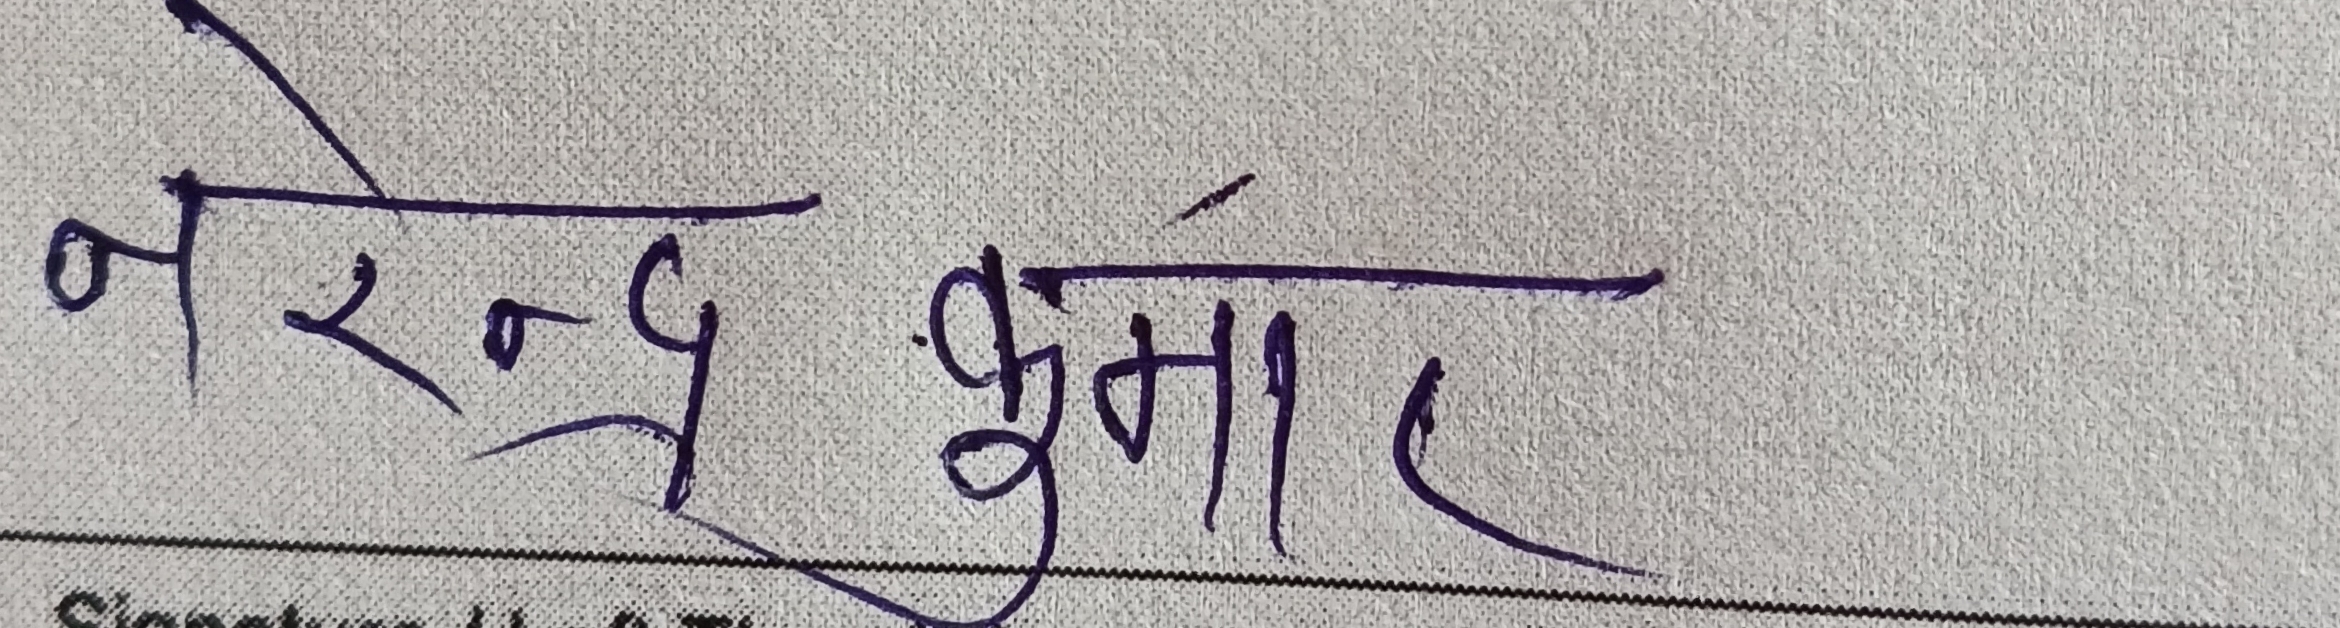 नरेन्द्र कुमार
Signature